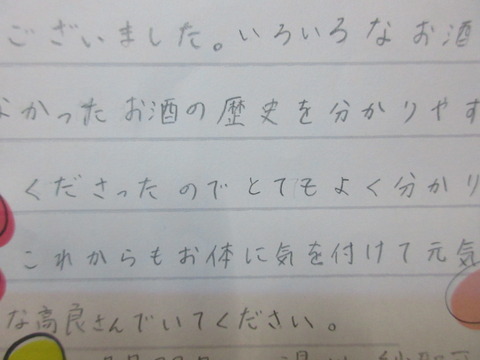 ございました。いろいろなお酒
なかったお酒の歴史を分かりやす
くださったのでとてもよく分かり
これからもお体に気を付けて元気
な高良さんでいてください。